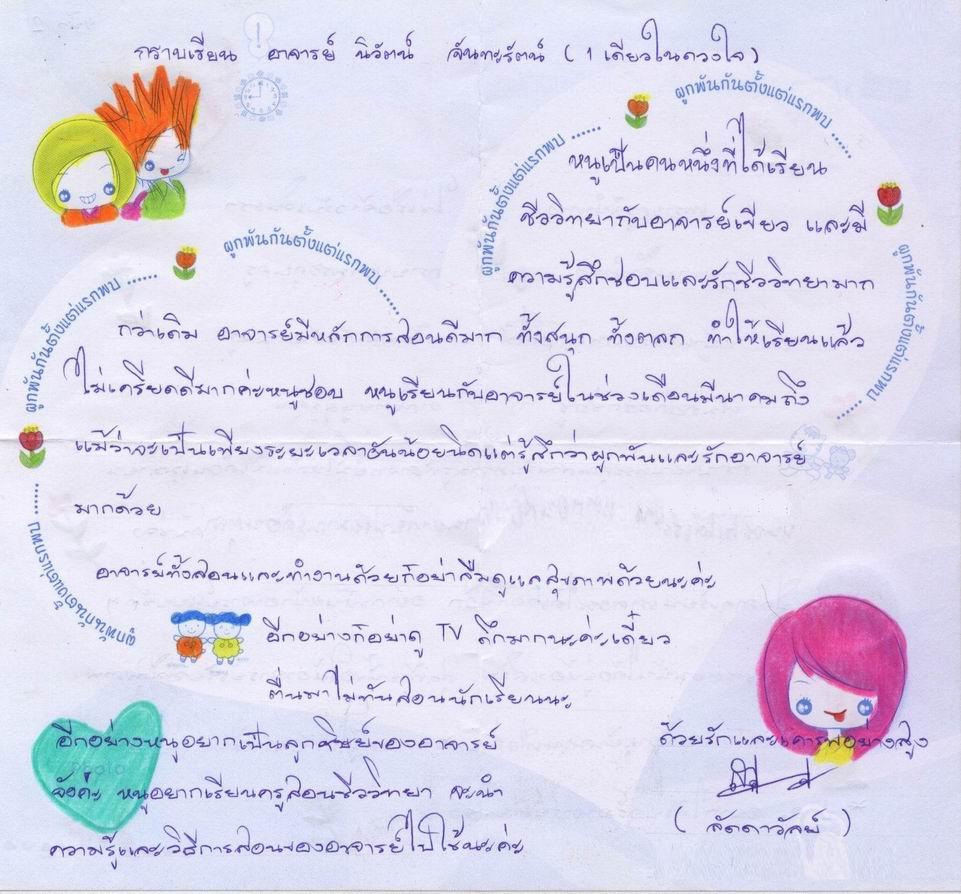 กราบเรียน อาจารย์ นิวัตน์ จันทะรัตน์ ( 1 เดียวในดวงใจ)
ผูกพันกันตั้งแต่แรกพบ ......
ผูกพันกันตั้งแต่แรกพบ ......
ผูกพันกันตั้งแต่แรกพบ ......
หนูเป็นคนหนึ่งที่ได้เรียน
ชีววิทยากับอาจารย์เขียว และมี
ความรู้สึกชอบและรักชีววิทยามาก
ผูกพันกันตั้งแต่แรกพบ ......
ผูกพันกันตั้งแต่แรกพบ ......
ผูกพันกันตั้งแต่แรกพบ ......
กว่าเดิม อาจารย์มีหลักการสอนดีมาก ทั้งสนุก ทั้งตลก ทำให้เรียนแล้ว
ไม่เครียดดีมากค่ะหนูชอบ หนูเรียนกับอาจารย์ในช่วงเดือนมีนาคมถึง
แม้ว่าจะเป็นเพียงระยะเวลาอันน้อยนิดแต่รู้สึกว่าผูกพันและรักอาจารย์
มากด้วย
อาจารย์ทั้งสอนและทำงานด้วยก็อย่าลืมดูแลสุขภาพด้วยนะค่ะ
อีกอย่างก็อย่าดู TV ดึกมากนะค่ะเดี๋ยว
ตื่นมาไม่ทันสอนนักเรียนนะ
อีกอย่างหนูอยากเป็นลูกศิษย์ของอาจารย์
จังค่ะ หนูอยากเรียนครูสอนชีววิทยา จะนำ
ความรู้และวิธีการสอนของอาจารย์ไปใช้นะค่ะ
ด้วยรักและเคารพอย่างสูง
( ลัดดาวัลย์ )